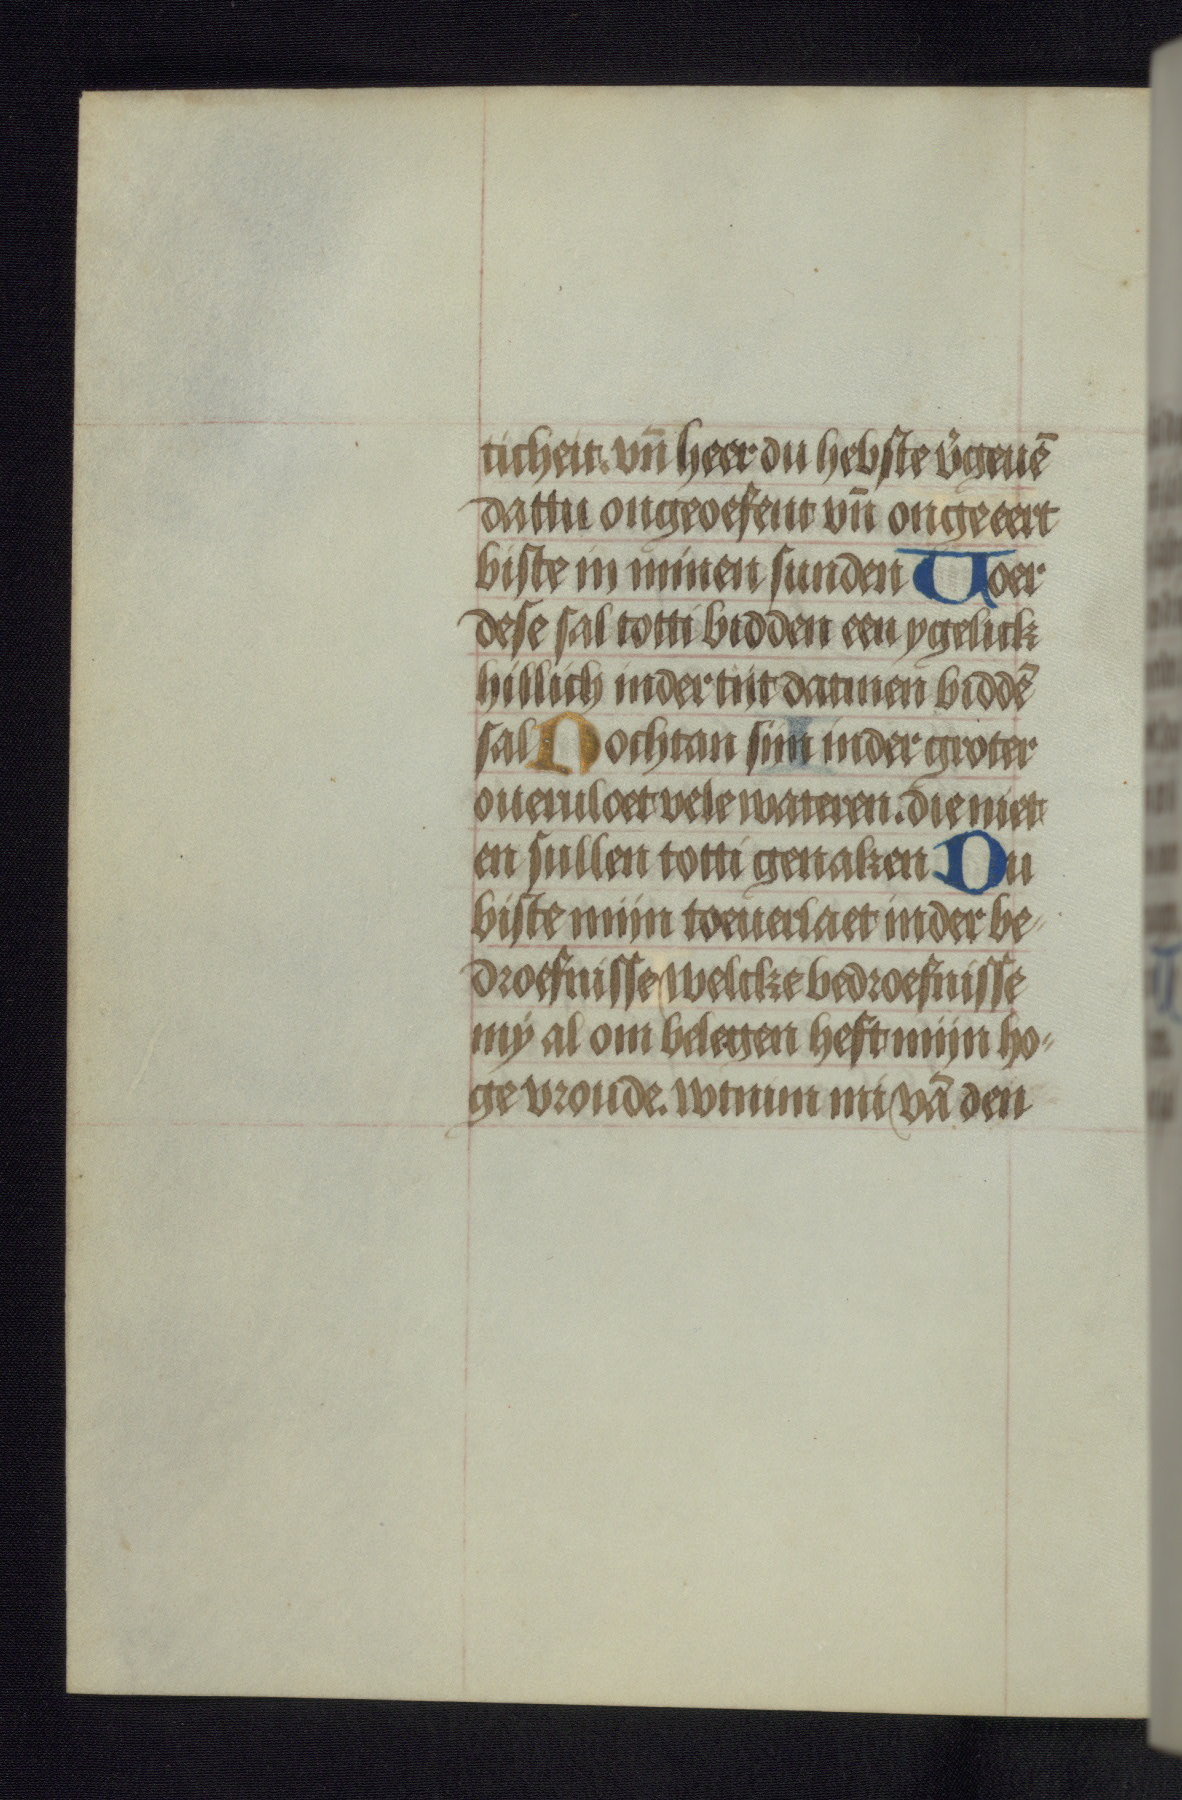 ticheit. vn̄ heer du hebste v̄geuē
dattu ongeoefent vn̄ ongeeert
biste in minen sunden Voer
dese sal totti bidden een ygelick
hillich inder tijt datmen biddē
sal Nochtan sijn inder groter
oueruloet vele wateren. die niet
en sullen totti genaken Du
biste mijn toeuerlaet inder be-
droefnisse welcke bedroefnisse
mÿ al om belegen heft mijn ho-
ge vroude. wtnim mi vā den